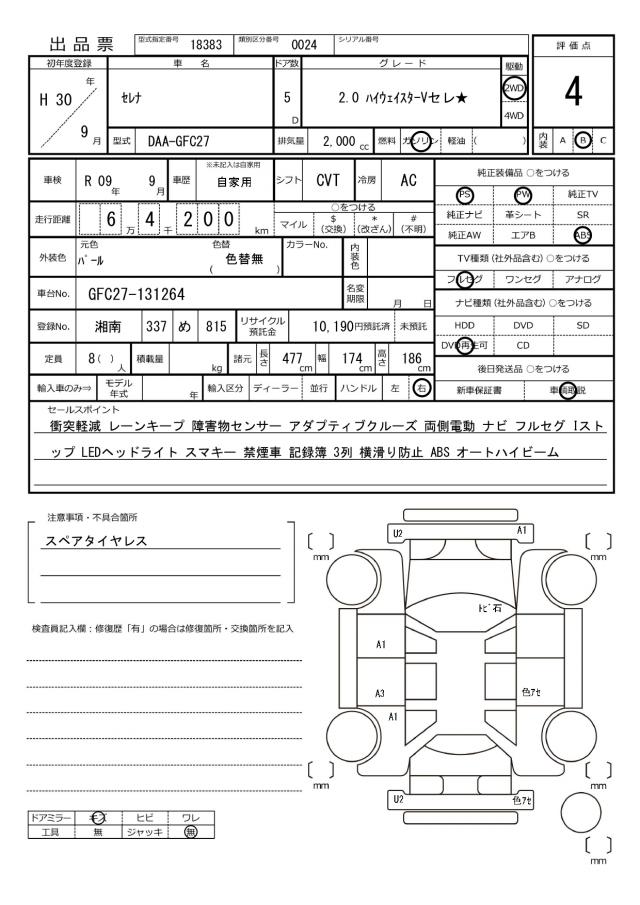 出品票 型式指定番号 18383 類別区分番号 0024 シリアル番号
評価点
初年度登録 車名 ドア数 グレード 駆動
H 30 年 セレナ 5 D 2.0 ハイウェイスターVセレ★ 2WD 4
9 月 4WD
型式 DAA-GFC27 排気量 2,000 cc 燃料 ガソリン 軽油 ( ) 内装 A B C
車検 R 09 年 9 月 車歴 ※未記入は自家用 自家用 シフト CVT 冷房 AC
走行距離 6 万 4 千 2 0 0 km
○をつける
マイル $(交換) *(改ざん) #(不明)
外装色 元色 パール 色替 色替無 ( ) カラーNo. 内装色
車台No. GFC27-131264 名変期限 月 日
登録No. 湘南 337 め 815 リサイクル預託金 10,190円預託済 未預託
定員 8( )人 積載量 kg 諸元 長さ 477 cm 幅 174 cm 高さ 186 cm
輸入車のみ⇒ モデル年式 年 輸入区分 ディーラー 並行 ハンドル 左 右
純正装備品 ○をつける
PS PW 純正TV
純正ナビ 革シート SR
純正AW エアB ABS
TV種類 (社外品含む) ○をつける
フルセグ ワンセグ アナログ
ナビ種類 (社外品含む) ○をつける
HDD DVD SD
DVD再生可 CD
後日発送品 ○をつける
新車保証書 車輌取説
セールスポイント
衝突軽減 レーンキープ 障害物センサー アダプティブクルーズ 両側電動 ナビ フルセグ Iスト
ップ LEDヘッドライト スマキー 禁煙車 記録簿 3列 横滑り防止 ABS オートハイビーム
注意事項・不具合箇所
スペアタイヤレス
検査員記入欄：修復歴「有」の場合は修復箇所・交換箇所を記入
U2 A1
mm mm
トビ石
A1
A3 色アセ
A1
mm mm
U2 色アセ
mm
ドアミラー キズ ヒビ ワレ
工具 無 ジャッキ 無